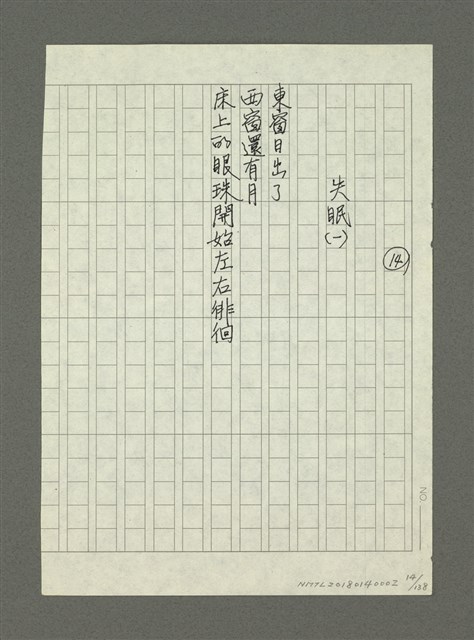 14
失眠(一)
東窗日出了
西窗還有月
床上的眼珠開始左右徘徊
NO
NMTL20180140002
14/138